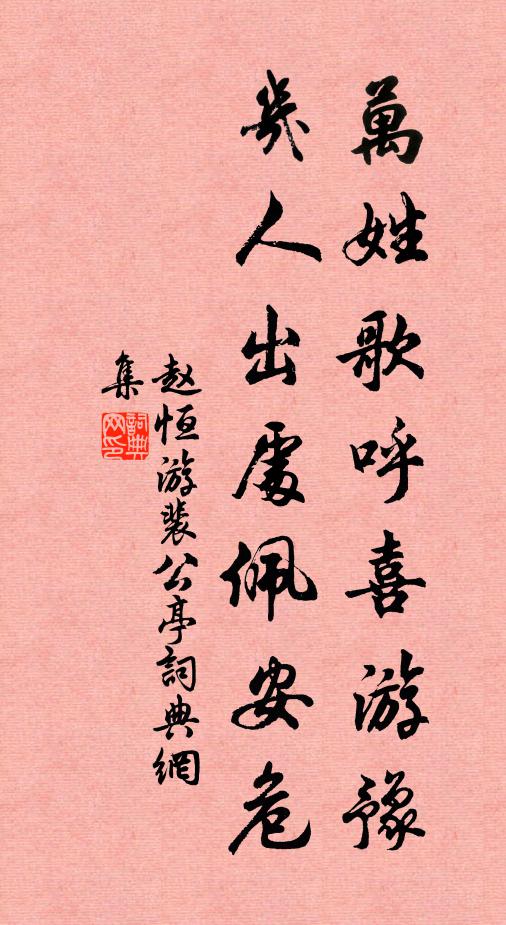 萬姓歌呼喜游豫
幾人出處佩安危
赵恒游裴公亭詞典網
集
詞典网印